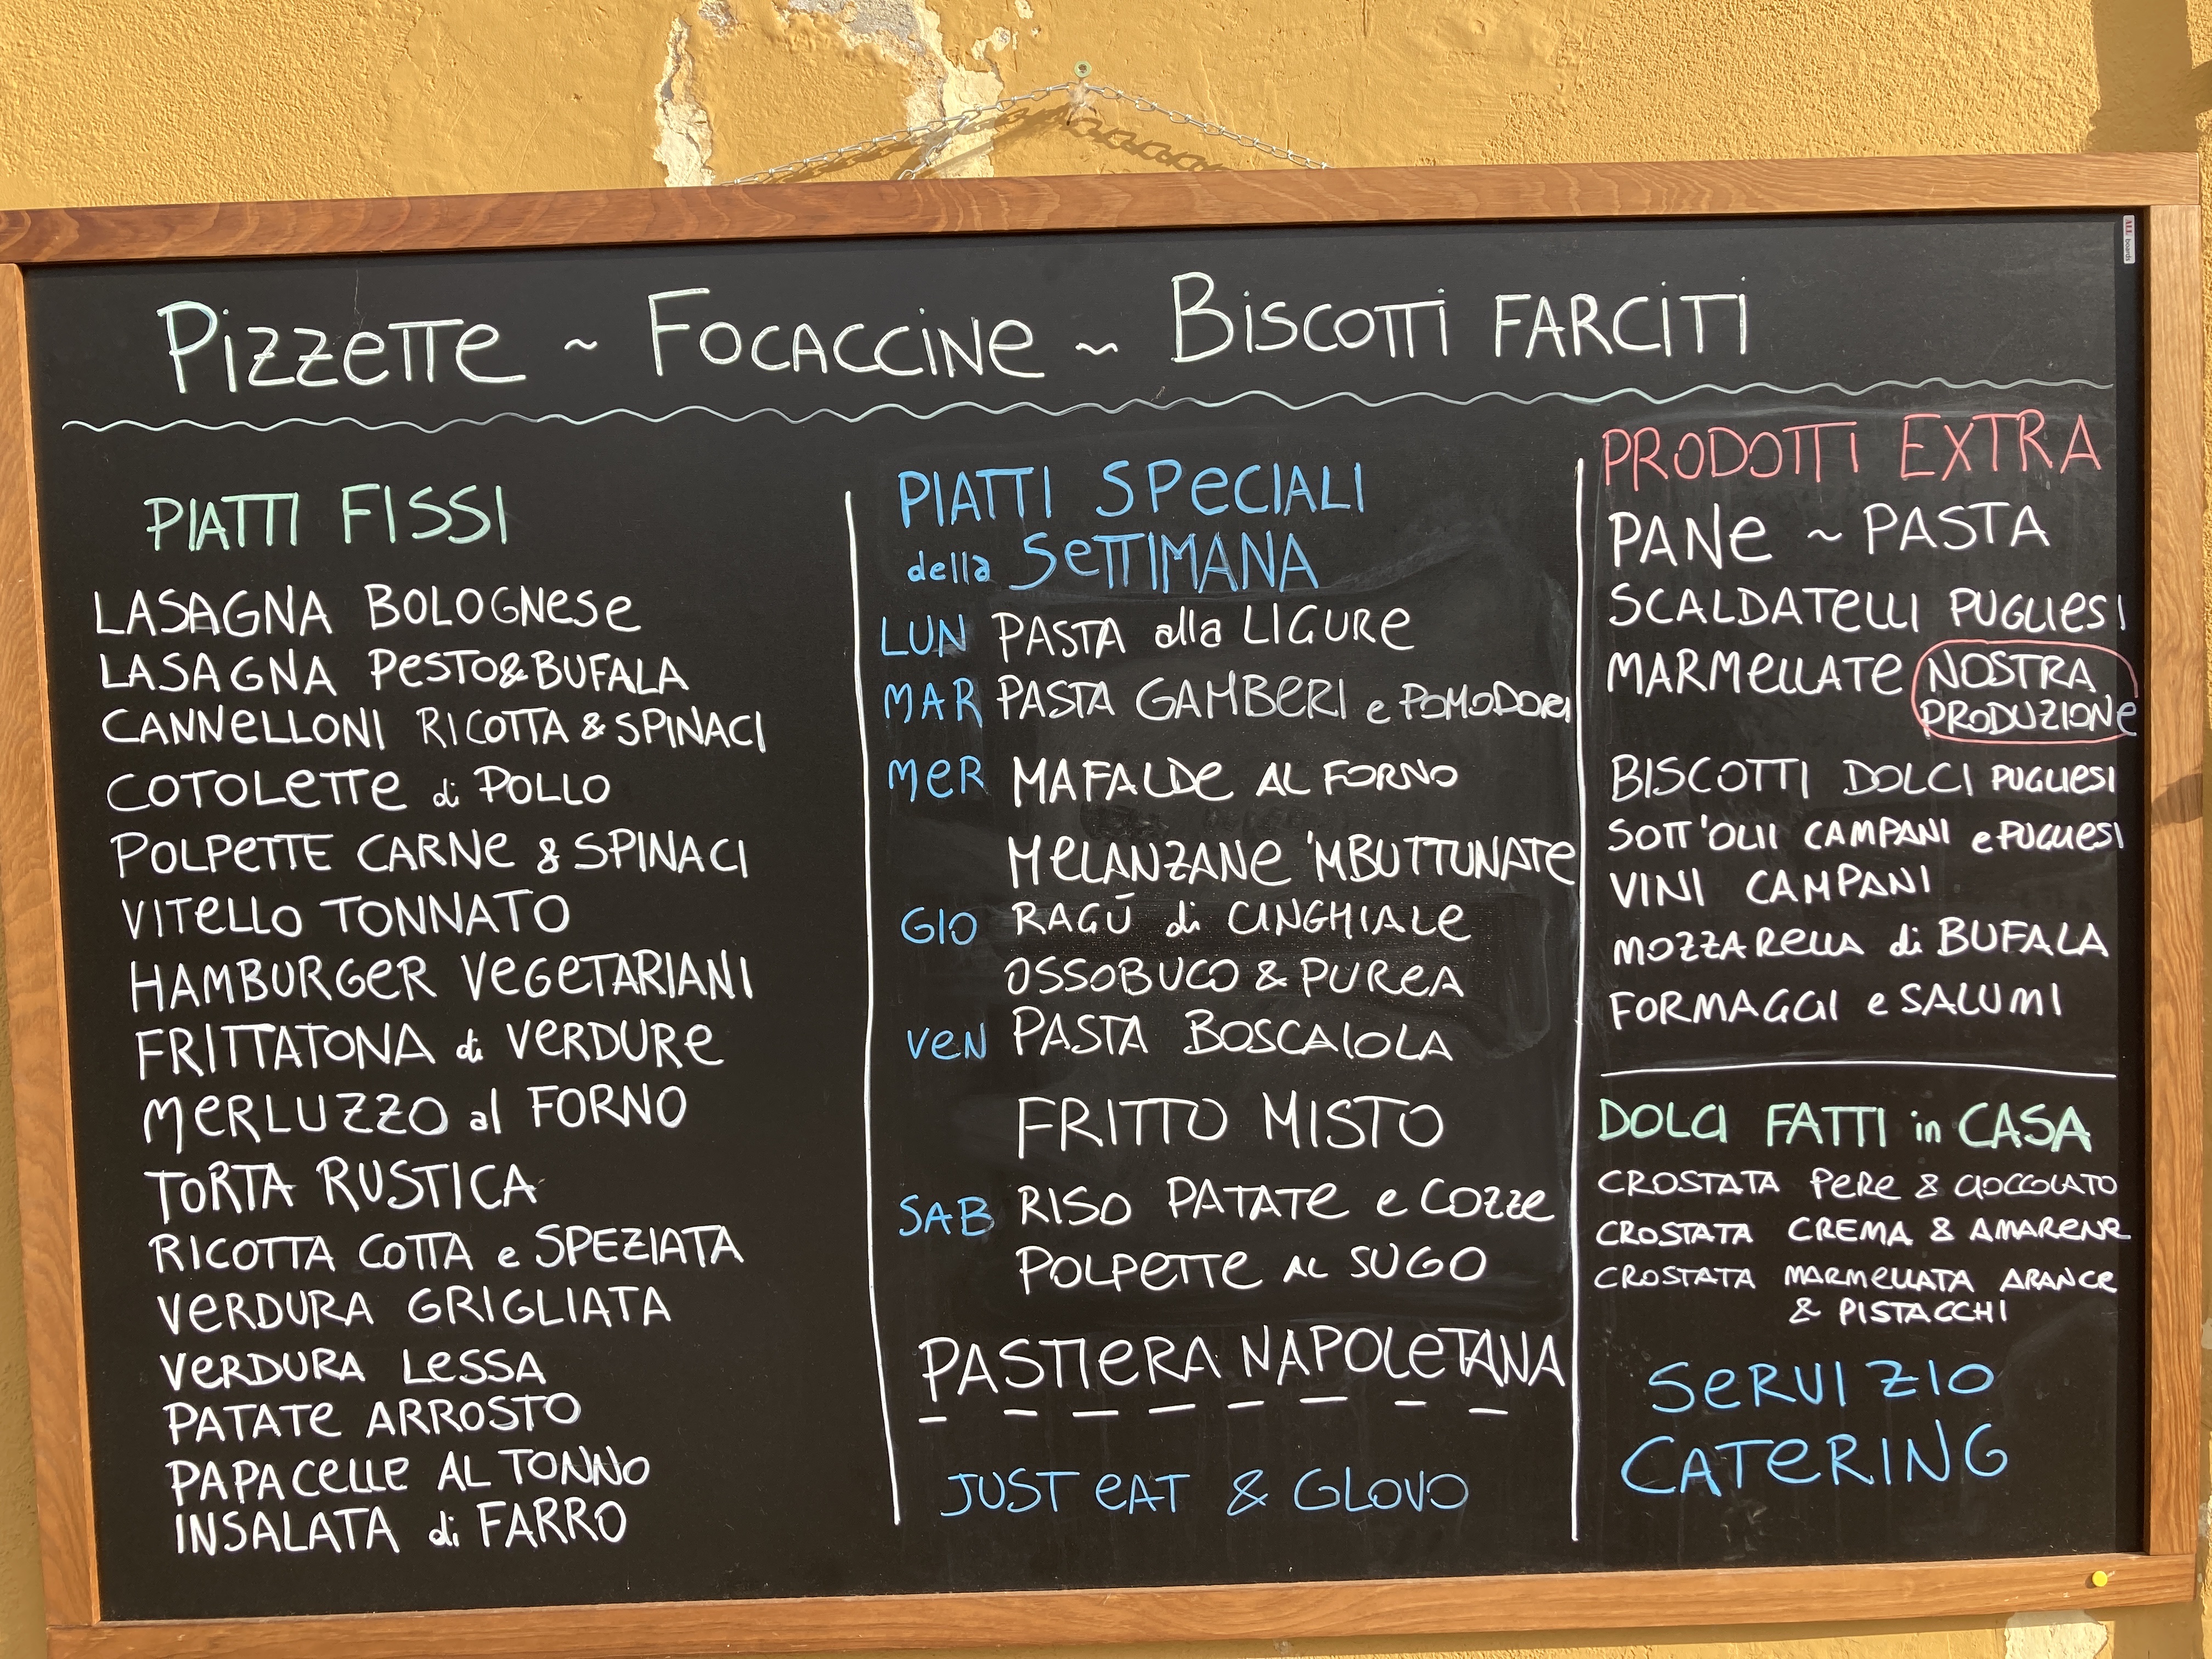 Pizzette ~ Focaccine ~ Biscotti farciti
PIATTI FISSI
LASAGNA BOLOGNESE
LASAGNA PESTO&BUFALA
CANNELLONI RICOTTA & SPINACI
COTOLETTE di POLLO
POLPETTE CARNE & SPINACI
VITELLO TONNATO
HAMBURGER VEGETARIANI
FRITTATONA di VERDURE
MERLUZZO al FORNO
TORTA RUSTICA
RICOTTA COTTA e SPEZIATA
VERDURA GRIGLIATA
VERDURA LESSA
PATATE ARROSTO
PAPACELLE AL TONNO
INSALATA di FARRO
PIATTI SPECIALI
della SETTIMANA
LUN PASTA alla LIGURE
MAR PASTA GAMBERI e POMODORI
MER MAFALDE AL FORNO
MELANZANE 'MBUTTUNATE
GIO RAGÚ di CINGHIALE
OSSOBUCO & PUREA
VEN PASTA BOSCAIOLA
FRITTO MISTO
SAB RISO PATATE e COZZE
POLPETTE AL SUGO
PASTIERA NAPOLETANA
JUST EAT & GLOVO
PRODOTTI EXTRA
PANE ~ PASTA
SCALDATELLI PUGLIESI
MARMELLATE NOSTRA
PRODUZIONE
BISCOTTI DOLCI PUGLIESI
SOTT'OLII CAMPANI e PUGLIESI
VINI CAMPANI
MOZZARELLA di BUFALA
FORMAGGI e SALUMI
DOLCI FATTI in CASA
CROSTATA PERE & CIOCCOLATO
CROSTATA CREMA & AMARENE
CROSTATA MARMELLATA ARANCE
& PISTACCHI
SERVIZIO
CATERING
ALL boards